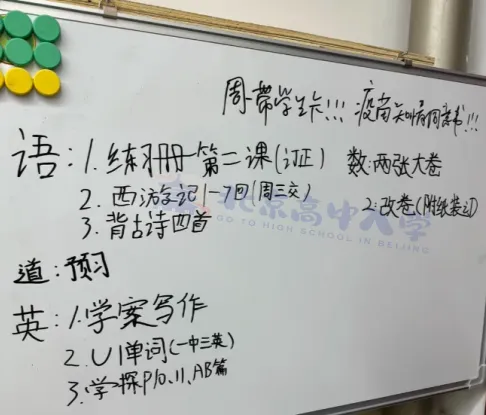 周一带学生卡!!! 疫苗知情同意书!!!
语:1.练习册第二课(订正) 数:两张大卷
2.西游记1-7回(周三交) 2.改卷(附纸装订)
3.背古诗四首
北京高中大学
GO TO HIGH SCHOOL IN BEIJING
道:预习
英:1.学案写作
2.U1单词(一中三英)
3.学探P10、11、AB篇